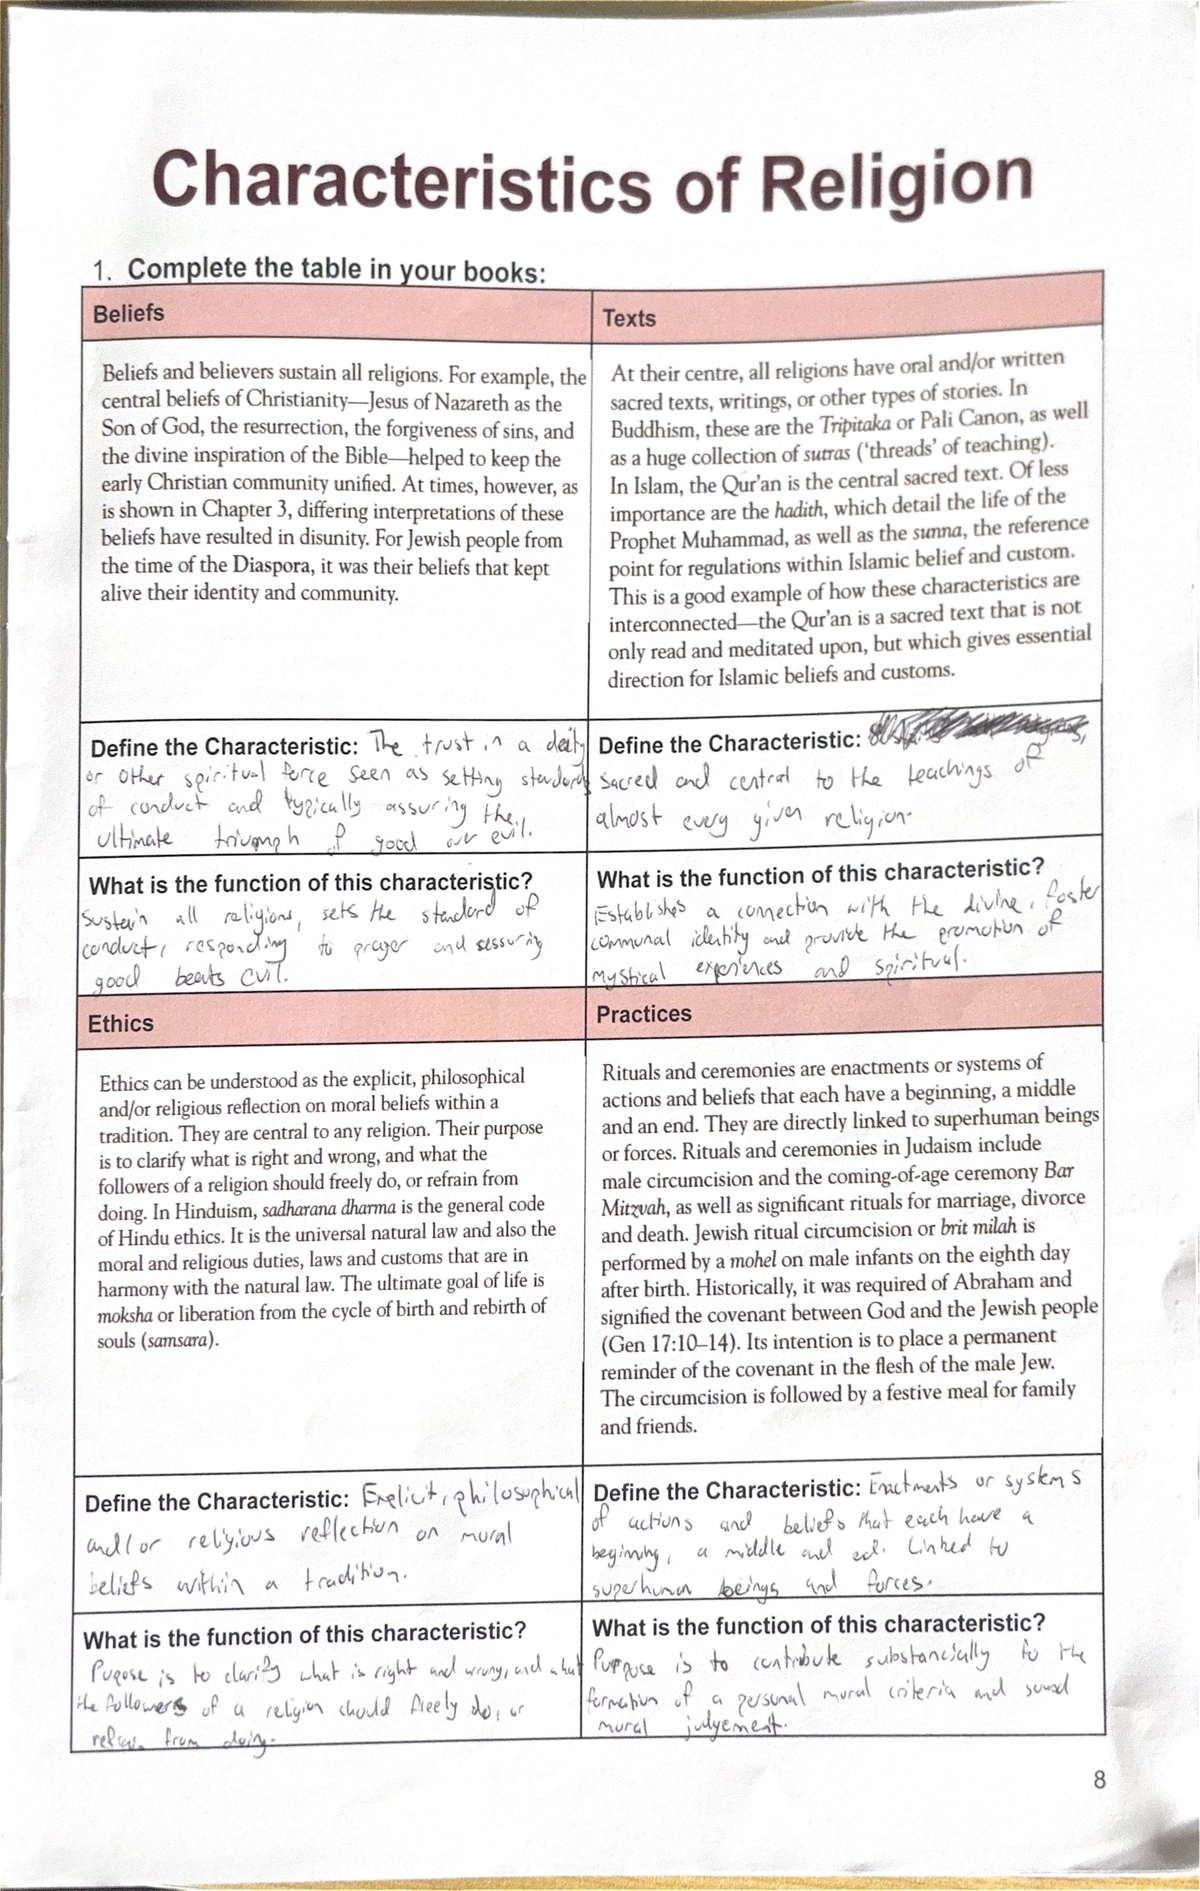 Characteristics of Religion
1. Complete the table in your books:
Beliefs
Beliefs and believers sustain all religions. For example, the
central beliefs of Christianity—Jesus of Nazareth as the
Son of God, the resurrection, the forgiveness of sins, and
the divine inspiration of the Bible—helped to keep the
early Christian community unified. At times, however, as
is shown in Chapter 3, differing interpretations of these
beliefs have resulted in disunity. For Jewish people from
the time of the Diaspora, it was their beliefs that kept
alive their identity and community.
Define the Characteristic: The trust in a deity
or other spiritual force seen as setting standards
of conduct and typically assuring the
ultimate triumph of good over evil.
What is the function of this characteristic?
Sustain all religions, sets the standard of
conduct, responding to prayer and
good beats evil.
Texts
At their centre, all religions have oral and/or written
sacred texts, writings, or other types of stories. In
Buddhism, these are the Tripitaka or Pali Canon, as well
as a huge collection of sutras (‘threads’ of teaching).
In Islam, the Qur’an is the central sacred text. Of less
importance are the hadith, which detail the life of the
Prophet Muhammad, as well as the sunna, the reference
point for regulations within Islamic belief and custom.
This is a good example of how these characteristics are
interconnected—the Qur’an is a sacred text that is not
only read and meditated upon, but which gives essential
direction for Islamic beliefs and customs.
Define the Characteristic:
Sacred and central to the teachings of
almost every given religion.
What is the function of this characteristic?
Establishes a connection with the divine, foster
communal identity and provide the promotion of
mystical experiences and spiritual.
Ethics
Ethics can be understood as the explicit, philosophical
and/or religious reflection on moral beliefs within a
tradition. They are central to any religion. Their purpose
is to clarify what is right and wrong, and what the
followers of a religion should freely do, or refrain from
doing. In Hinduism, sadharana dharma is the general code
of Hindu ethics. It is the universal natural law and also the
moral and religious duties, laws and customs that are in
harmony with the natural law. The ultimate goal of life is
moksha or liberation from the cycle of birth and rebirth of
souls (samsara).
Define the Characteristic: Explicit, philosophical
and/or religious reflection on moral
beliefs within a tradition.
What is the function of this characteristic?
Pupose is to clarify what is right and wrong, and what
the followers of a religion should freely do, or
refrain from doing.
Practices
Rituals and ceremonies are enactments or systems of
actions and beliefs that each have a beginning, a middle
and an end. They are directly linked to superhuman beings
or forces. Rituals and ceremonies in Judaism include
male circumcision and the coming-of-age ceremony Bar
Mitzvah, as well as significant rituals for marriage, divorce
and death. Jewish ritual circumcision or brit milah is
performed by a mohel on male infants on the eighth day
after birth. Historically, it was required of Abraham and
signified the covenant between God and the Jewish people
(Gen 17:10–14). Its intention is to place a permanent
reminder of the covenant in the flesh of the male Jew.
The circumcision is followed by a festive meal for family
and friends.
Define the Characteristic: Enactments or systems
of actions and beliefs that each have a
beginning, a middle and ed. Linked to
superhuman beings and forces.
What is the function of this characteristic?
Purpose is to contribute substancially to the
formation of a personal moral criteria and sound
moral judgement.
8